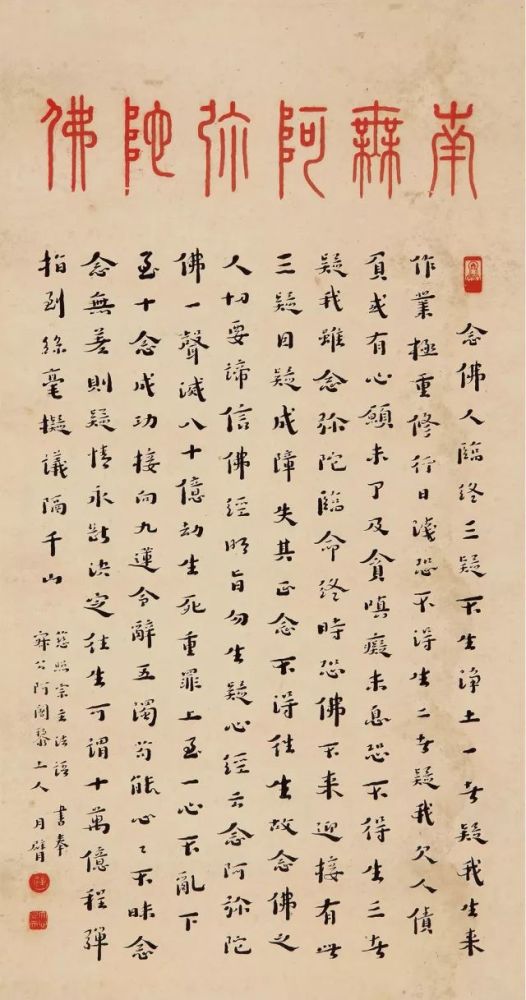 南無阿弥陀佛
念佛人臨終三疑不生淨土一者疑我生来
作業極重修行日淺恐不得生二者疑我欠人債
負或有心願未了及貪嗔癡未息恐不得生三者
疑我雖念弥陀臨命終時恐佛不来迎接有此
三疑因疑成障失其正念不得往生故念佛之
人切要諦信佛經明旨勿生疑心經云念阿弥陀
佛一聲滅八十億劫生死重罪上至一心不亂下
至十念成功接向九蓮令辭五濁苟能心〻不昧念
念無差則疑情永断決定往生可謂十萬億程彈
指到絲毫擬議隔千山
慈照宗主法語 書奉
寂公阿闍黎上人 月臂